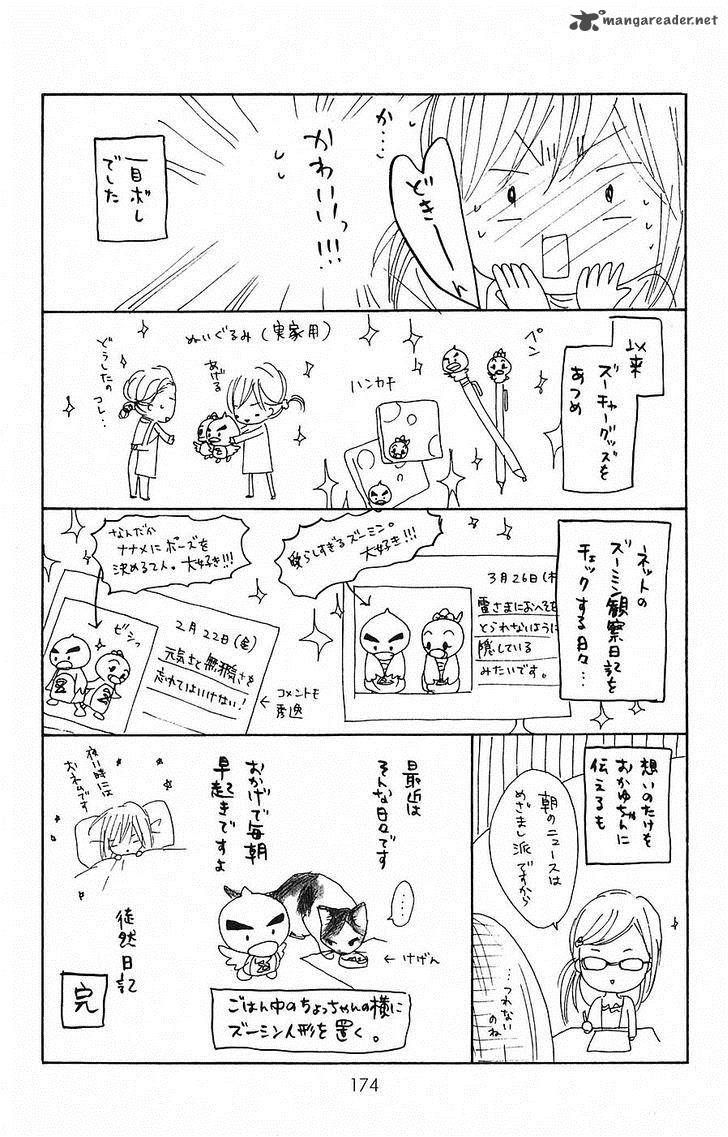 mangareader.net
か…
どきーーん
かわいいっ!!!
一目ボレ
でした
以来
ズーチャーグッズを
あつめ
ペン
ハンカチ
ぬいぐるみ(実家用)
あげる
どうしたの
コレ…
ネットの
ズーミン観察日記を
チェックする日々…
愛らしすぎるズーミン。
大好き!!!
3月26日(木
雷さまにおへそを
とられないように
隠している
みたいです。
なんだか
ナナメにポーズを
決める2人。大好き!!!
ビシっ
2月22日(金)
元気さと無邪気さを
忘れてはいけない!
←コメントも
秀逸
想いのたけを
おかゆちゃんに
伝えるも
朝のニュースは
めざまし派ですから
…つれない
のね
最近は
そんな日々です
おかげで毎朝
早起きですよ
……
←けげん
ごはん中のちょっちゃんの横に
ズーミン人形を置く。
夜い時には
おネムです
徒然日記
完
174